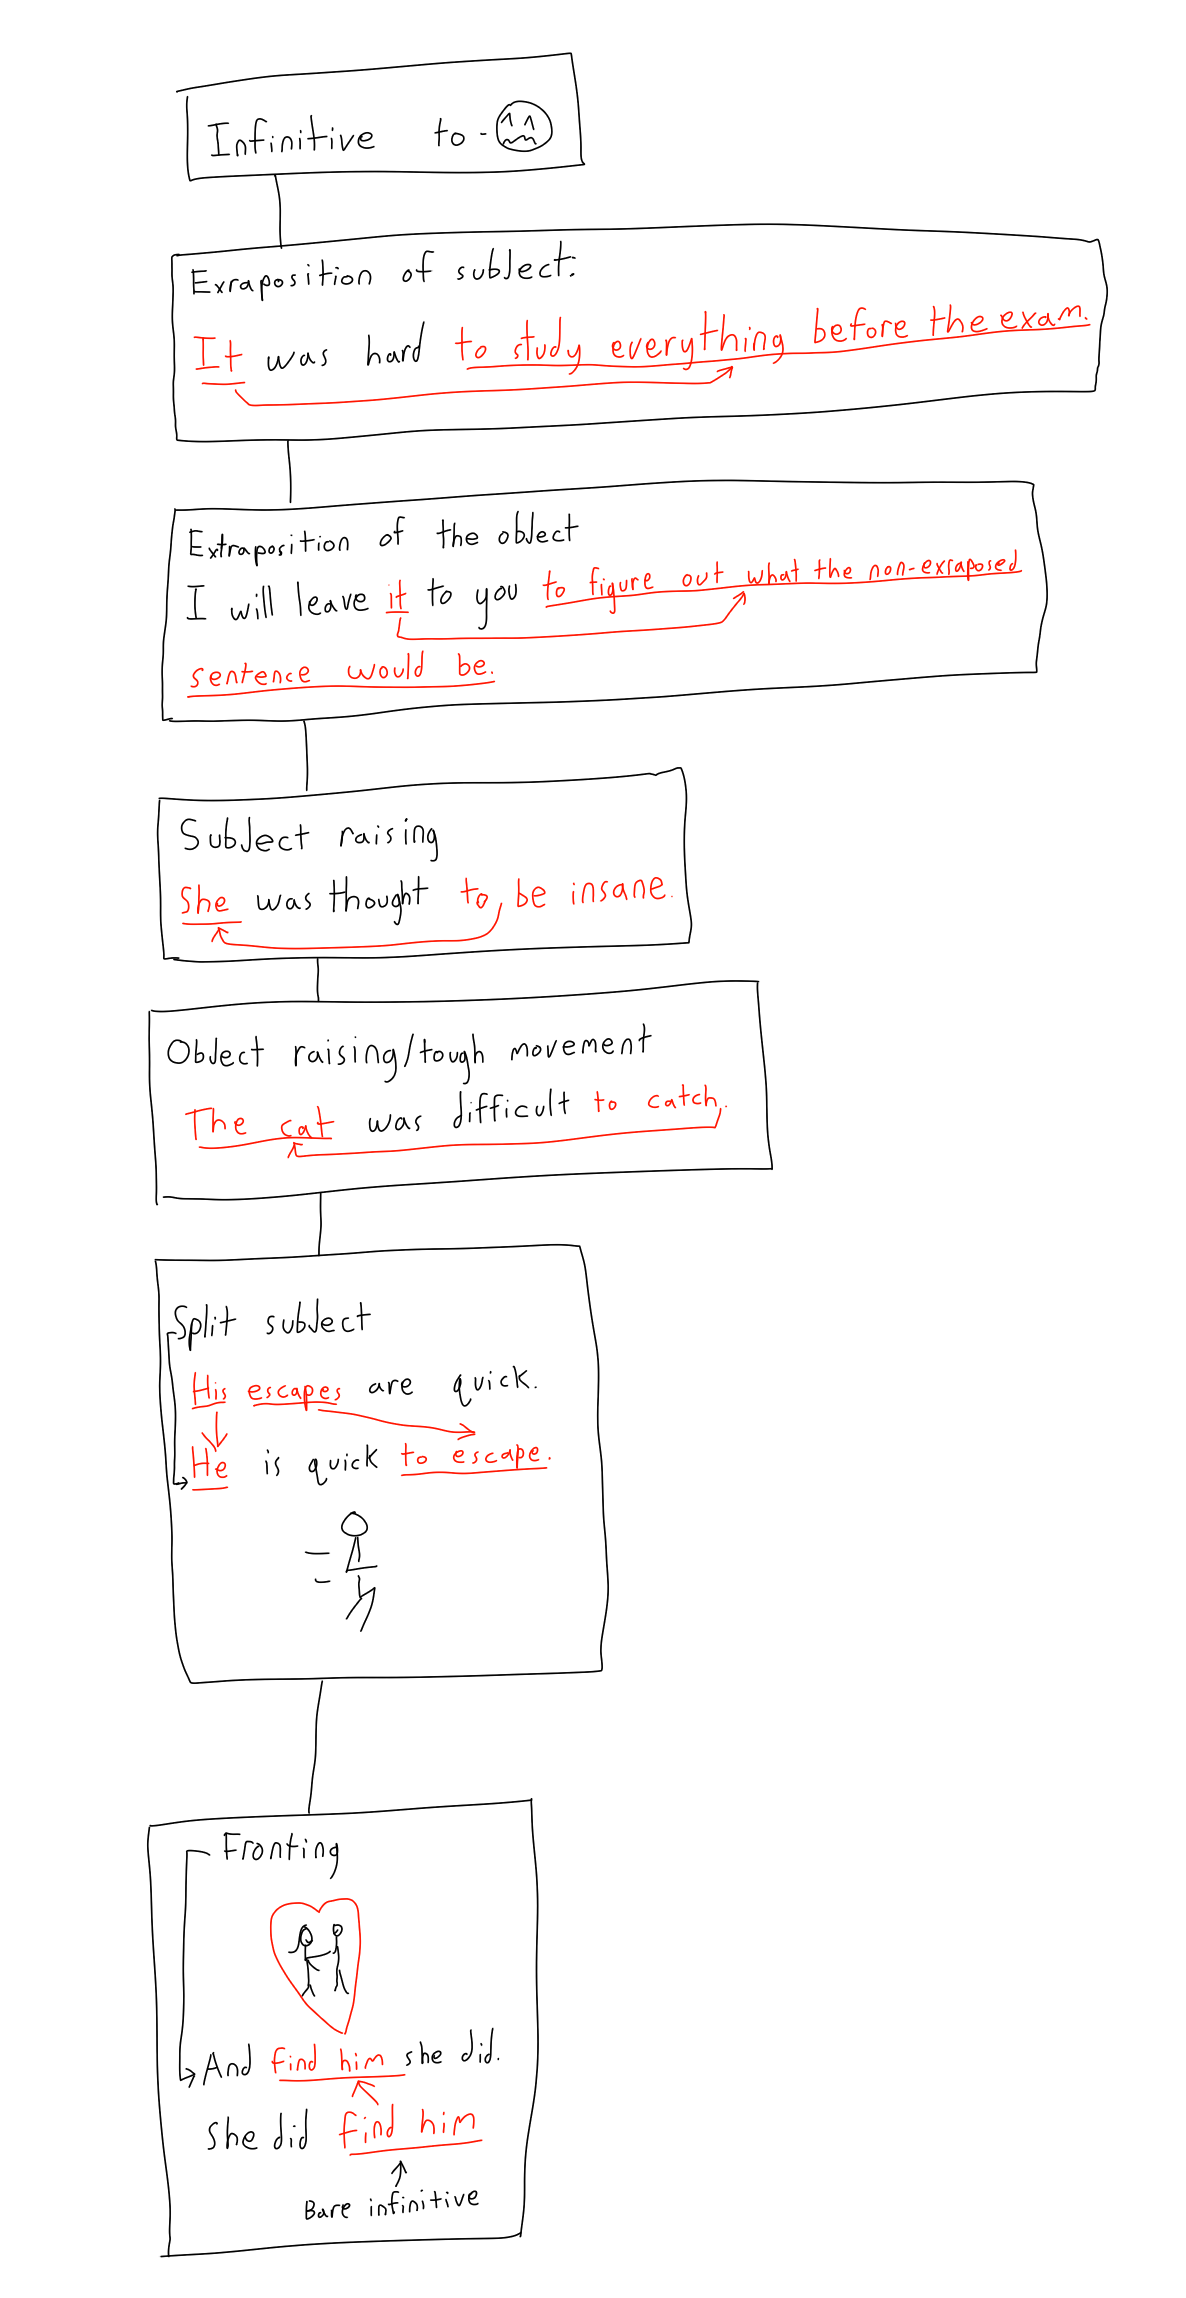 Infinitive to -
Exraposition of subject:
It was hard to study everything before the exam.
Extraposition of the object
I will leave it to you to figure out what the non-exraposed
sentence would be.
Subject raising
She was thought to be insane.
Object raising/tough movement
The cat was difficult to catch.
Split subject
His escapes are quick.
He is quick to escape.
Fronting
And find him she did.
She did find him
Bare infinitive